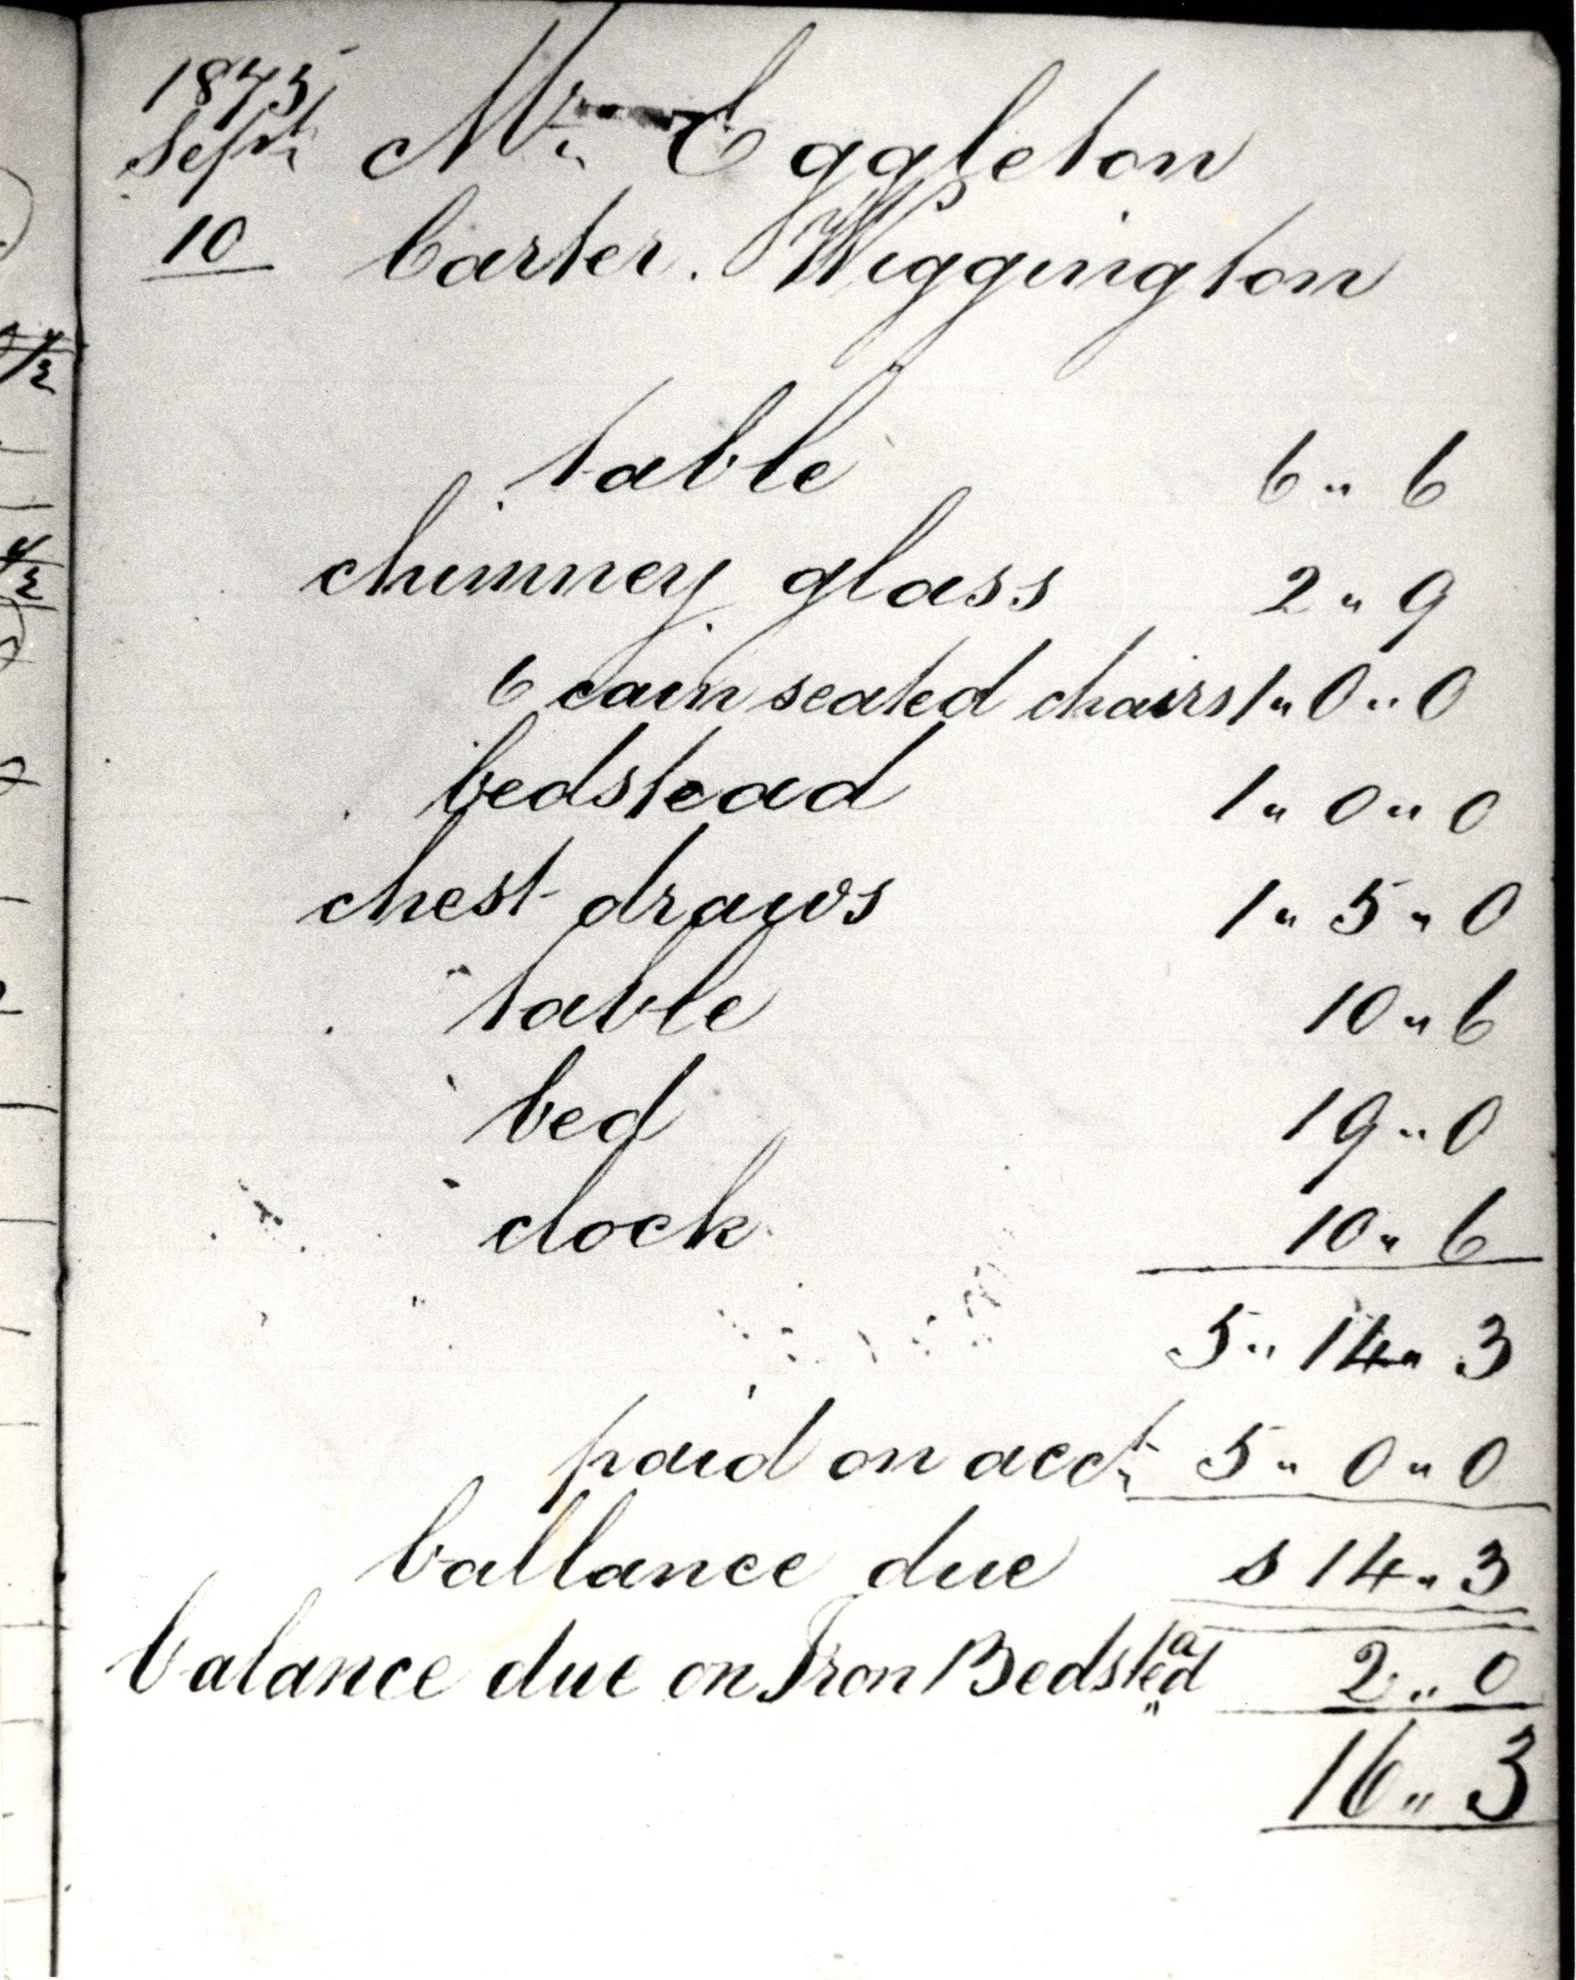 1875
Sept. Mr. Eggleton
10 Carter. Wiggington
table 6 " 6
chimney glass 2 " 9
6 cain seated chairs 1 " 0 " 0
bedstead 1 " 0 " 0
chest draws 1 " 5 " 0
table 10 " 6
bed 19 " 0
clock 10 " 6
5 " 14 " 3
paid on acct. 5 " 0 " 0
ballance due s 14 " 3
balance due on Iron Bedstead 2 " 0
16 " 3